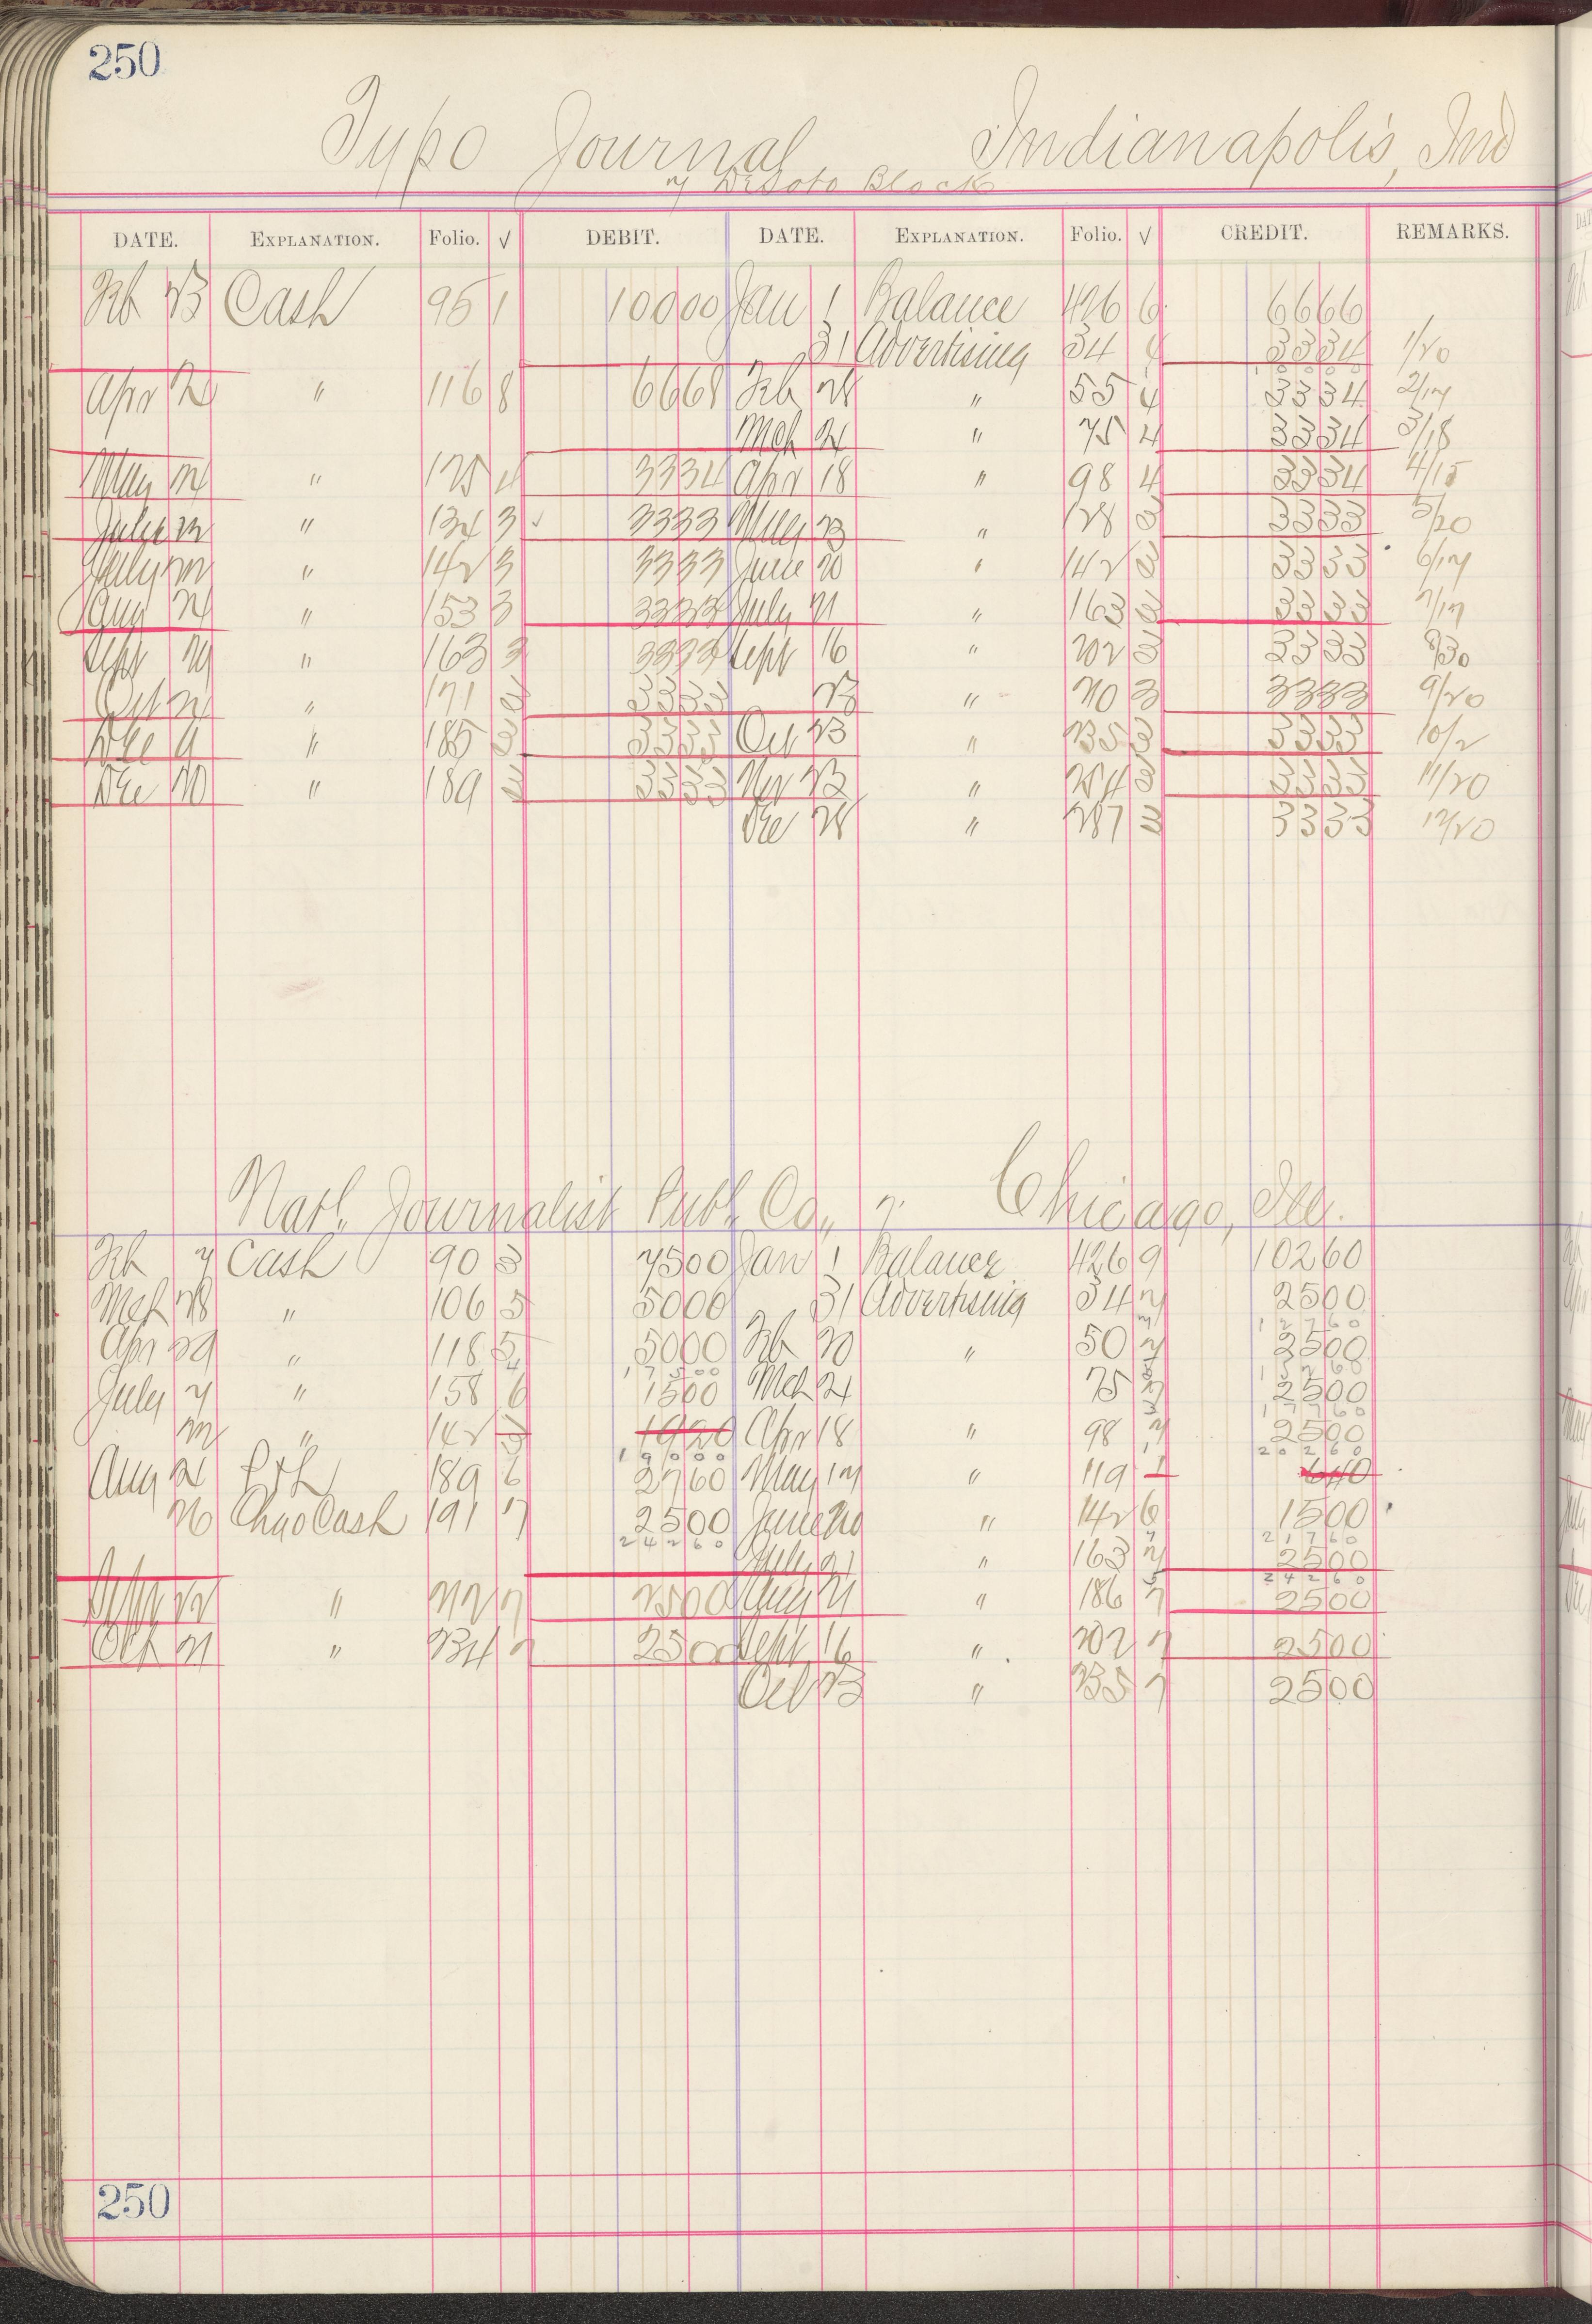 250
Typo Journal Indianapolis, Ind
7 DeSoto Block
DATE. EXPLANATION. Folio. √ DEBIT. DATE. EXPLANATION. Folio. √ CREDIT. REMARKS.
Feb 23 Cash 95 1 10000 Jan 1 Balance 426 6 6666
31 Advertising 34 4 3334 1/20
Apr 2 " 116 8 6668 Feb 28 " 55 4 3334 2/17
Mch 24 " 75 4 3334 3/18
May " 125 4 3334 Apr 18 " 98 4 3334 4/15
" 134 3 √ 3333 May 23 " 128 3 3333 5/20
July 22 " 142 3 3333 June 20 " 142 3 3333 6/17
Aug 24 " 153 3 3333 July 21 " 163 3 3333 7/17
Sept " 163 3 3333 Sept 16 " 202 3 3333 8/30
Oct " 171 3 3333 23 " 3 3333 9/20
Dec 9 " 185 3 3333 Oct 23 " 235 3 3333 10/2
Dec 20 " 189 3 3333 Nov 23 " 254 3 3333 11/20
Dec 28 " 287 3 3333 12/20
Natl. Journalist Publ. Co., 7. Chicago, Ill.
Feb 7 Cash 90 3 7500 Jan 1 Balance 426 9 10260
Mch 28 " 106 5 5000 31 Advertising 34 7 2500
12760
Apr 29 " 118 5 5000 Feb 20 " 50 7 2500
17500 15260
July 7 " 158 6 1500 Mch 24 75 7 2500
17760
22 " 142 3 1920 Apr 18 " 98 7 2500
19000 20260
Aug 21 P & L 189 6 2760 May 17 " 119 1 640
26 Chgo Cash 191 7 2500 June 20 " 142 6 1500
24260 21760
July 21 " 163 7 2500
24260
Sept 22 " 212 7 2500 Aug 21 " 186 7 2500
Oct 21 " 234 7 2500 Sept 16 " 202 7 2500
Oct 23 " 235 7 2500
250